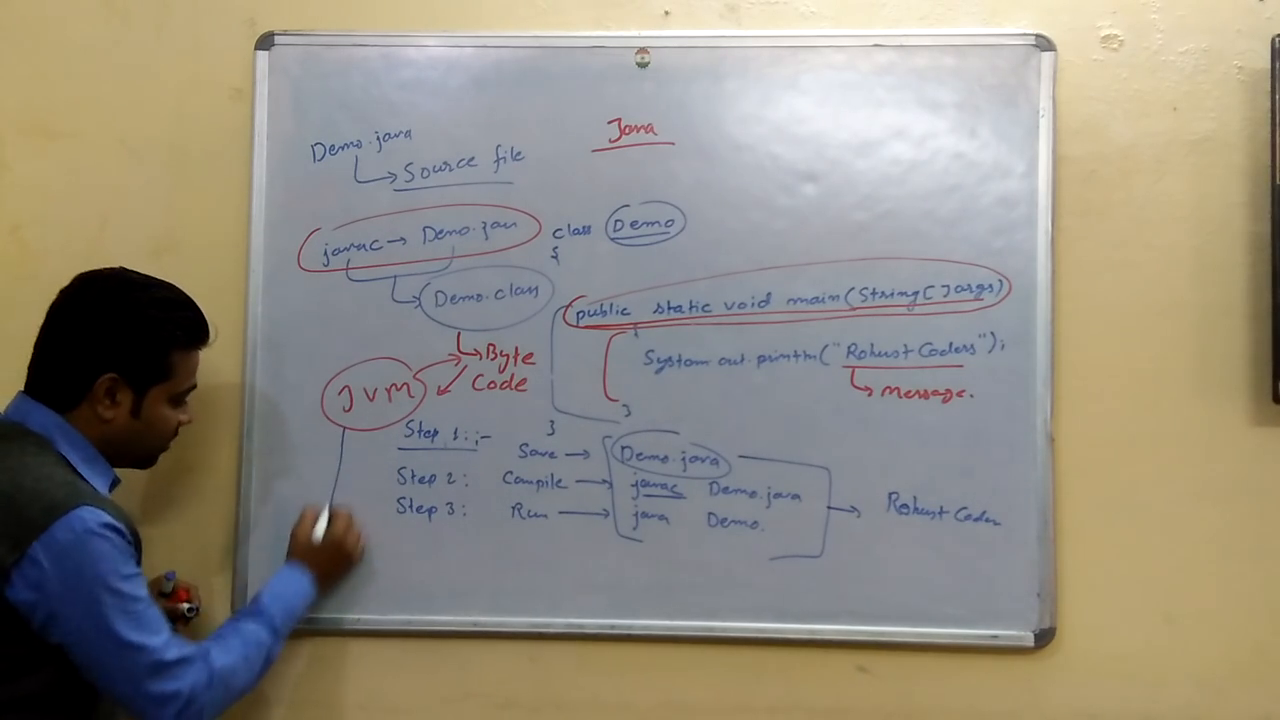 Java
Demo.java
Source file
javac → Demo.java
Demo.class
Byte
Code
JVM
class Demo
{
public static void main(String[] args)
{
System.out.println("Robust Coders");
Message.
}
}
Step 1:- Save → Demo.java
Step 2: Compile → javac Demo.java
Step 3: Run → java Demo.
Robust Coder